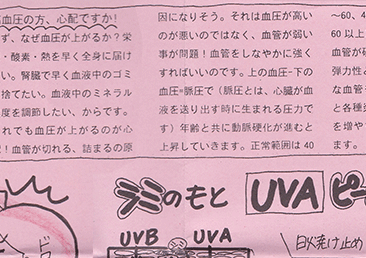 血圧の方、心配ですか!
ず、なぜ血圧が上がるか?栄
・酸素・熱を早く全身に届け
い。腎臓で早く血液中のゴミ
捨てたい。血液中のミネラル
度を調節したい、からです。
れでも血圧が上がるのが心
!血管が切れる、詰まるの原
因になりそう。それは血圧が高い
のが悪いのではなく、血管が弱い
事が問題!血管をしなやかに強く
すればいいのです。上の血圧-下の
血圧=脈圧で(脈圧とは、心臓が血
液を送り出す時に生まれる圧力で
す)年齢と共に動脈硬化が進むと
上昇していきます。正常範囲は40
~60、4
60以上
血管の
弾力性と
な血管
と各種
を増や
ます。
シミのもと UVA ピー
UVB UVA
日火焼け止め